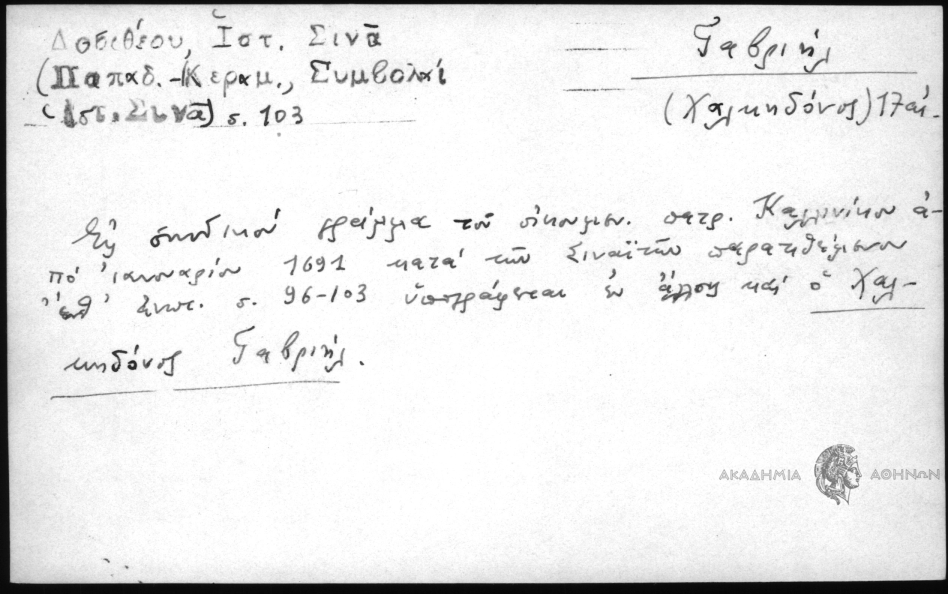 Δοσιθέου, Ἱστ. Σινᾶ
(Παπαδ.-Κεραμ., Συμβολαί
(Ἱστ. Σινᾶ) σ. 103
Γαβριήλ
(Χαλκηδόνος) 17 αἰ.
Εἰς συνδικόν γράμμα τοῦ οἰκουμεν. πατρ. Καλλινίκου ἀ-
πό ἰανουαρίου 1691 κατά τῶν Σιναϊτῶν παρατιθέμενον
ἐνθ' ἀνωτ. σ. 96-103 ὑπογράφεται ἐν ἄλλοις καί ὁ Χαλ-
κηδόνος Γαβριήλ.
ΑΚΑΔΗΜΙΑ ΑΘΗΝΩΝ